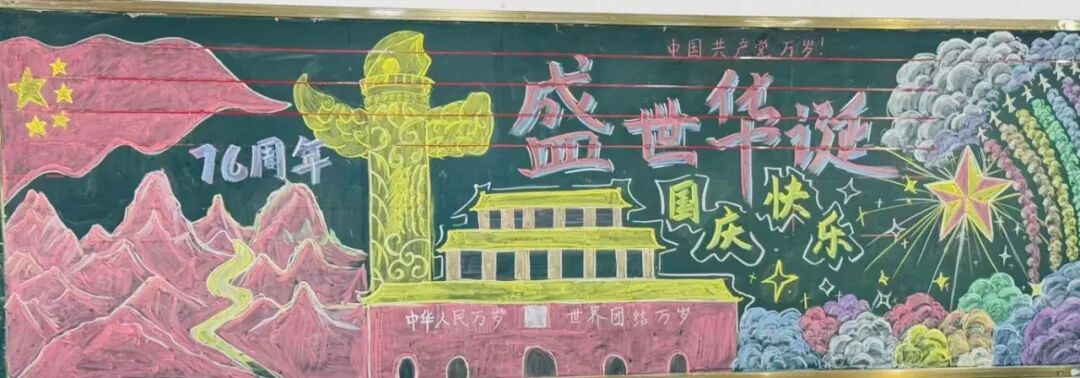 中国共产党万岁!
盛世华诞
76周年
国庆快乐
中华人民万岁 世界团结万岁